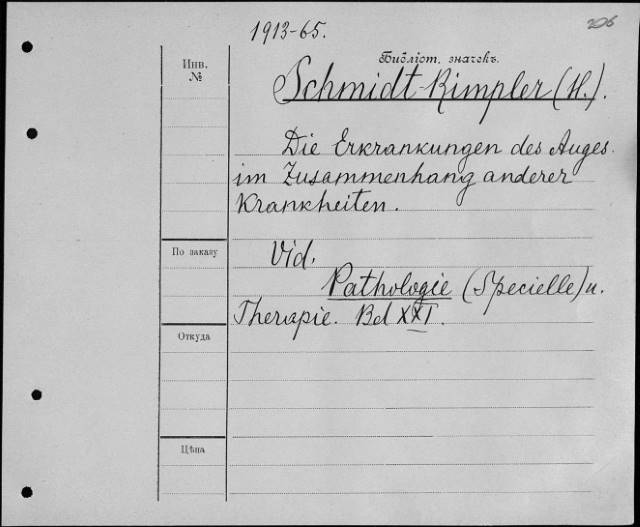 1913-65.
206
Инв.
№
Библіот. значекъ.
Schmidt-Rimpler (H.).
Die Erkrankungen des Auges
im Zusammenhang anderer
Krankheiten.
По заказу
Vid.
Pathologie (Specielle) u.
Therapie. Bd XXI.
Откуда
Цѣна